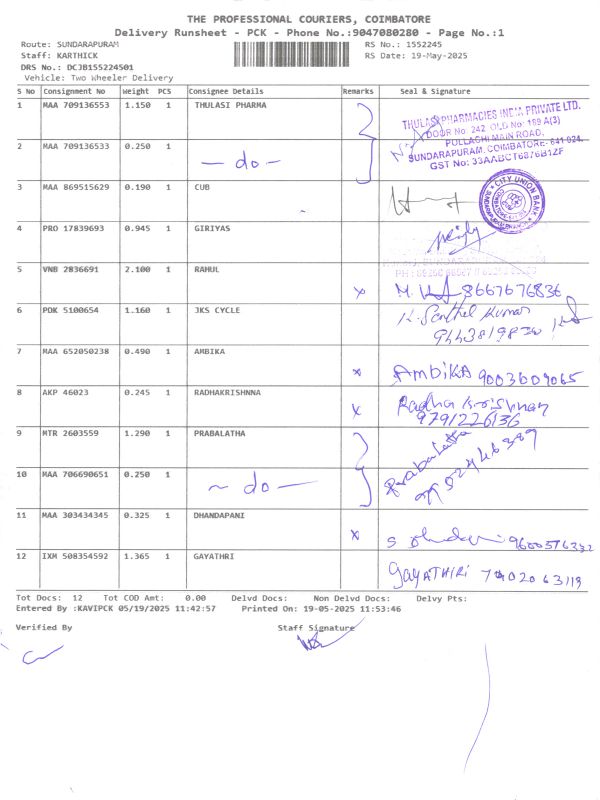 THE PROFESSIONAL COURIERS, COIMBATORE
Delivery Runsheet - PCK - Phone No.:9047080280 - Page No.:1
Route: SUNDARAPURAM RS No.: 1552245
Staff: KARTHICK RS Date: 19-May-2025
DRS No.: DCJB155224501
Vehicle: Two Wheeler Delivery
S No Consignment No Weight PCS Consignee Details Remarks Seal & Signature
1 MAA 709136553 1.150 1 THULASI PHARMA
THULASI PHARMACIES INDIA PRIVATE LTD.
DOOR No: 242, OLD No: 189 A(3)
POLLACHI MAIN ROAD,
SUNDARAPURAM, COIMBATORE- 641 024.
GST No: 33AABCT6876B1ZF
2 MAA 709136533 0.250 1 — do —
3 MAA 869515629 0.190 1 CUB
CITY UNION BANK
4 PRO 17839693 0.945 1 GIRIYAS
5 VNB 2836691 2.100 1 RAHUL x 8667676836
6 PDK 5100654 1.160 1 JKS CYCLE K. Senthel Kumar
9443819830
7 MAA 652050238 0.490 1 AMBIKA x AMBIKA 9003609065
8 AKP 46023 0.245 1 RADHAKRISHNNA x Radha Krishnan
9791226136
9 MTR 2603559 1.290 1 PRABALATHA Prabalatha
10 MAA 706690651 0.250 1 ~ do —
11 MAA 303434345 0.325 1 DHANDAPANI x
12 IXM 508354592 1.365 1 GAYATHRI GAYATHIRI
Tot Docs: 12 Tot COD Amt: 0.00 Delvd Docs: Non Delvd Docs: Delvy Pts:
Entered By :KAVIPCK 05/19/2025 11:42:57 Printed On: 19-05-2025 11:53:46
Verified By Staff Signature